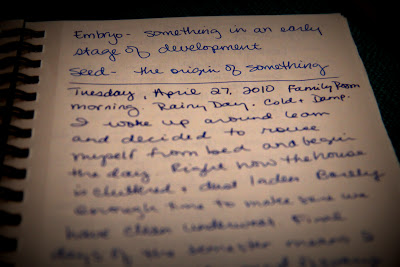 Embryo- something in an early
stage of development
Seed- the origin of something
Tuesday, April 27, 2010 Family Room
morning. Rainy Day. Cold + Damp.
I woke up around 6am
and decided to rouse
myself from bed and begin
the day. Right now the house
is cluttered + dust laden. Barely
enough time to make sure we
have clean underwear. Final
days of the semester means I